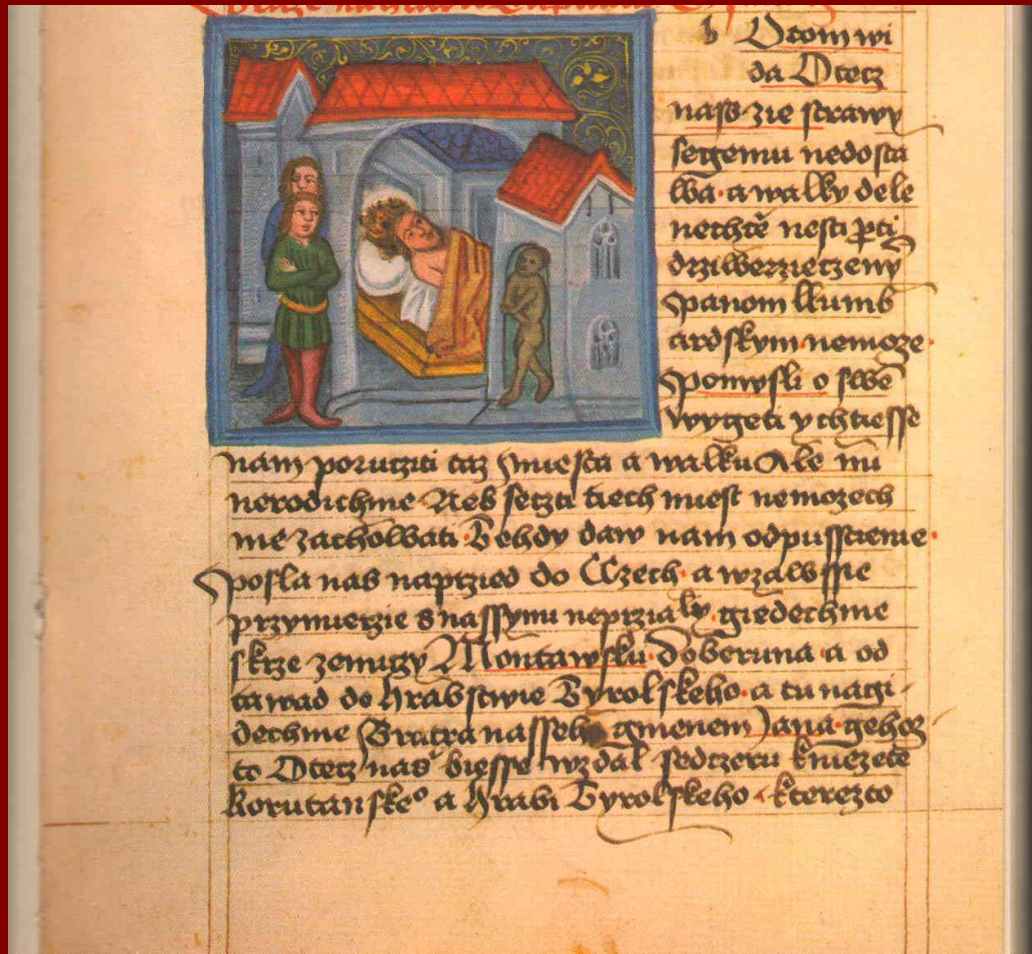 Otom wi
da Otecz
nass zie strawy
segemu nedosta
wa · a walky dele
nechtie nesti prti
drziwerzieczeny
panom llumb
ardskym nemoze ·
pomysli o swe
wygeti y chtiesse
nam porucziti taz miesta a walku Ale my
nerodichme Neb seczti tiech miest nemozech
me zachowati · Tehdy daw nam odpusscienie ·
posla nas naprzied do Czech · a wzawssie
przymierzie s nassymi neprzialy · giedechme
skrze zemiczy Montawsku · doberuna · a od
tawad do hrabstwie Tyrolskeho · a tu nagi
dechme Bratra nasseho gmenem Jana · gehoz
to Otecz nas biesse wzdal sedczeru kniezete
korutanskeo a hrabi Tyrolskeho · kterezto